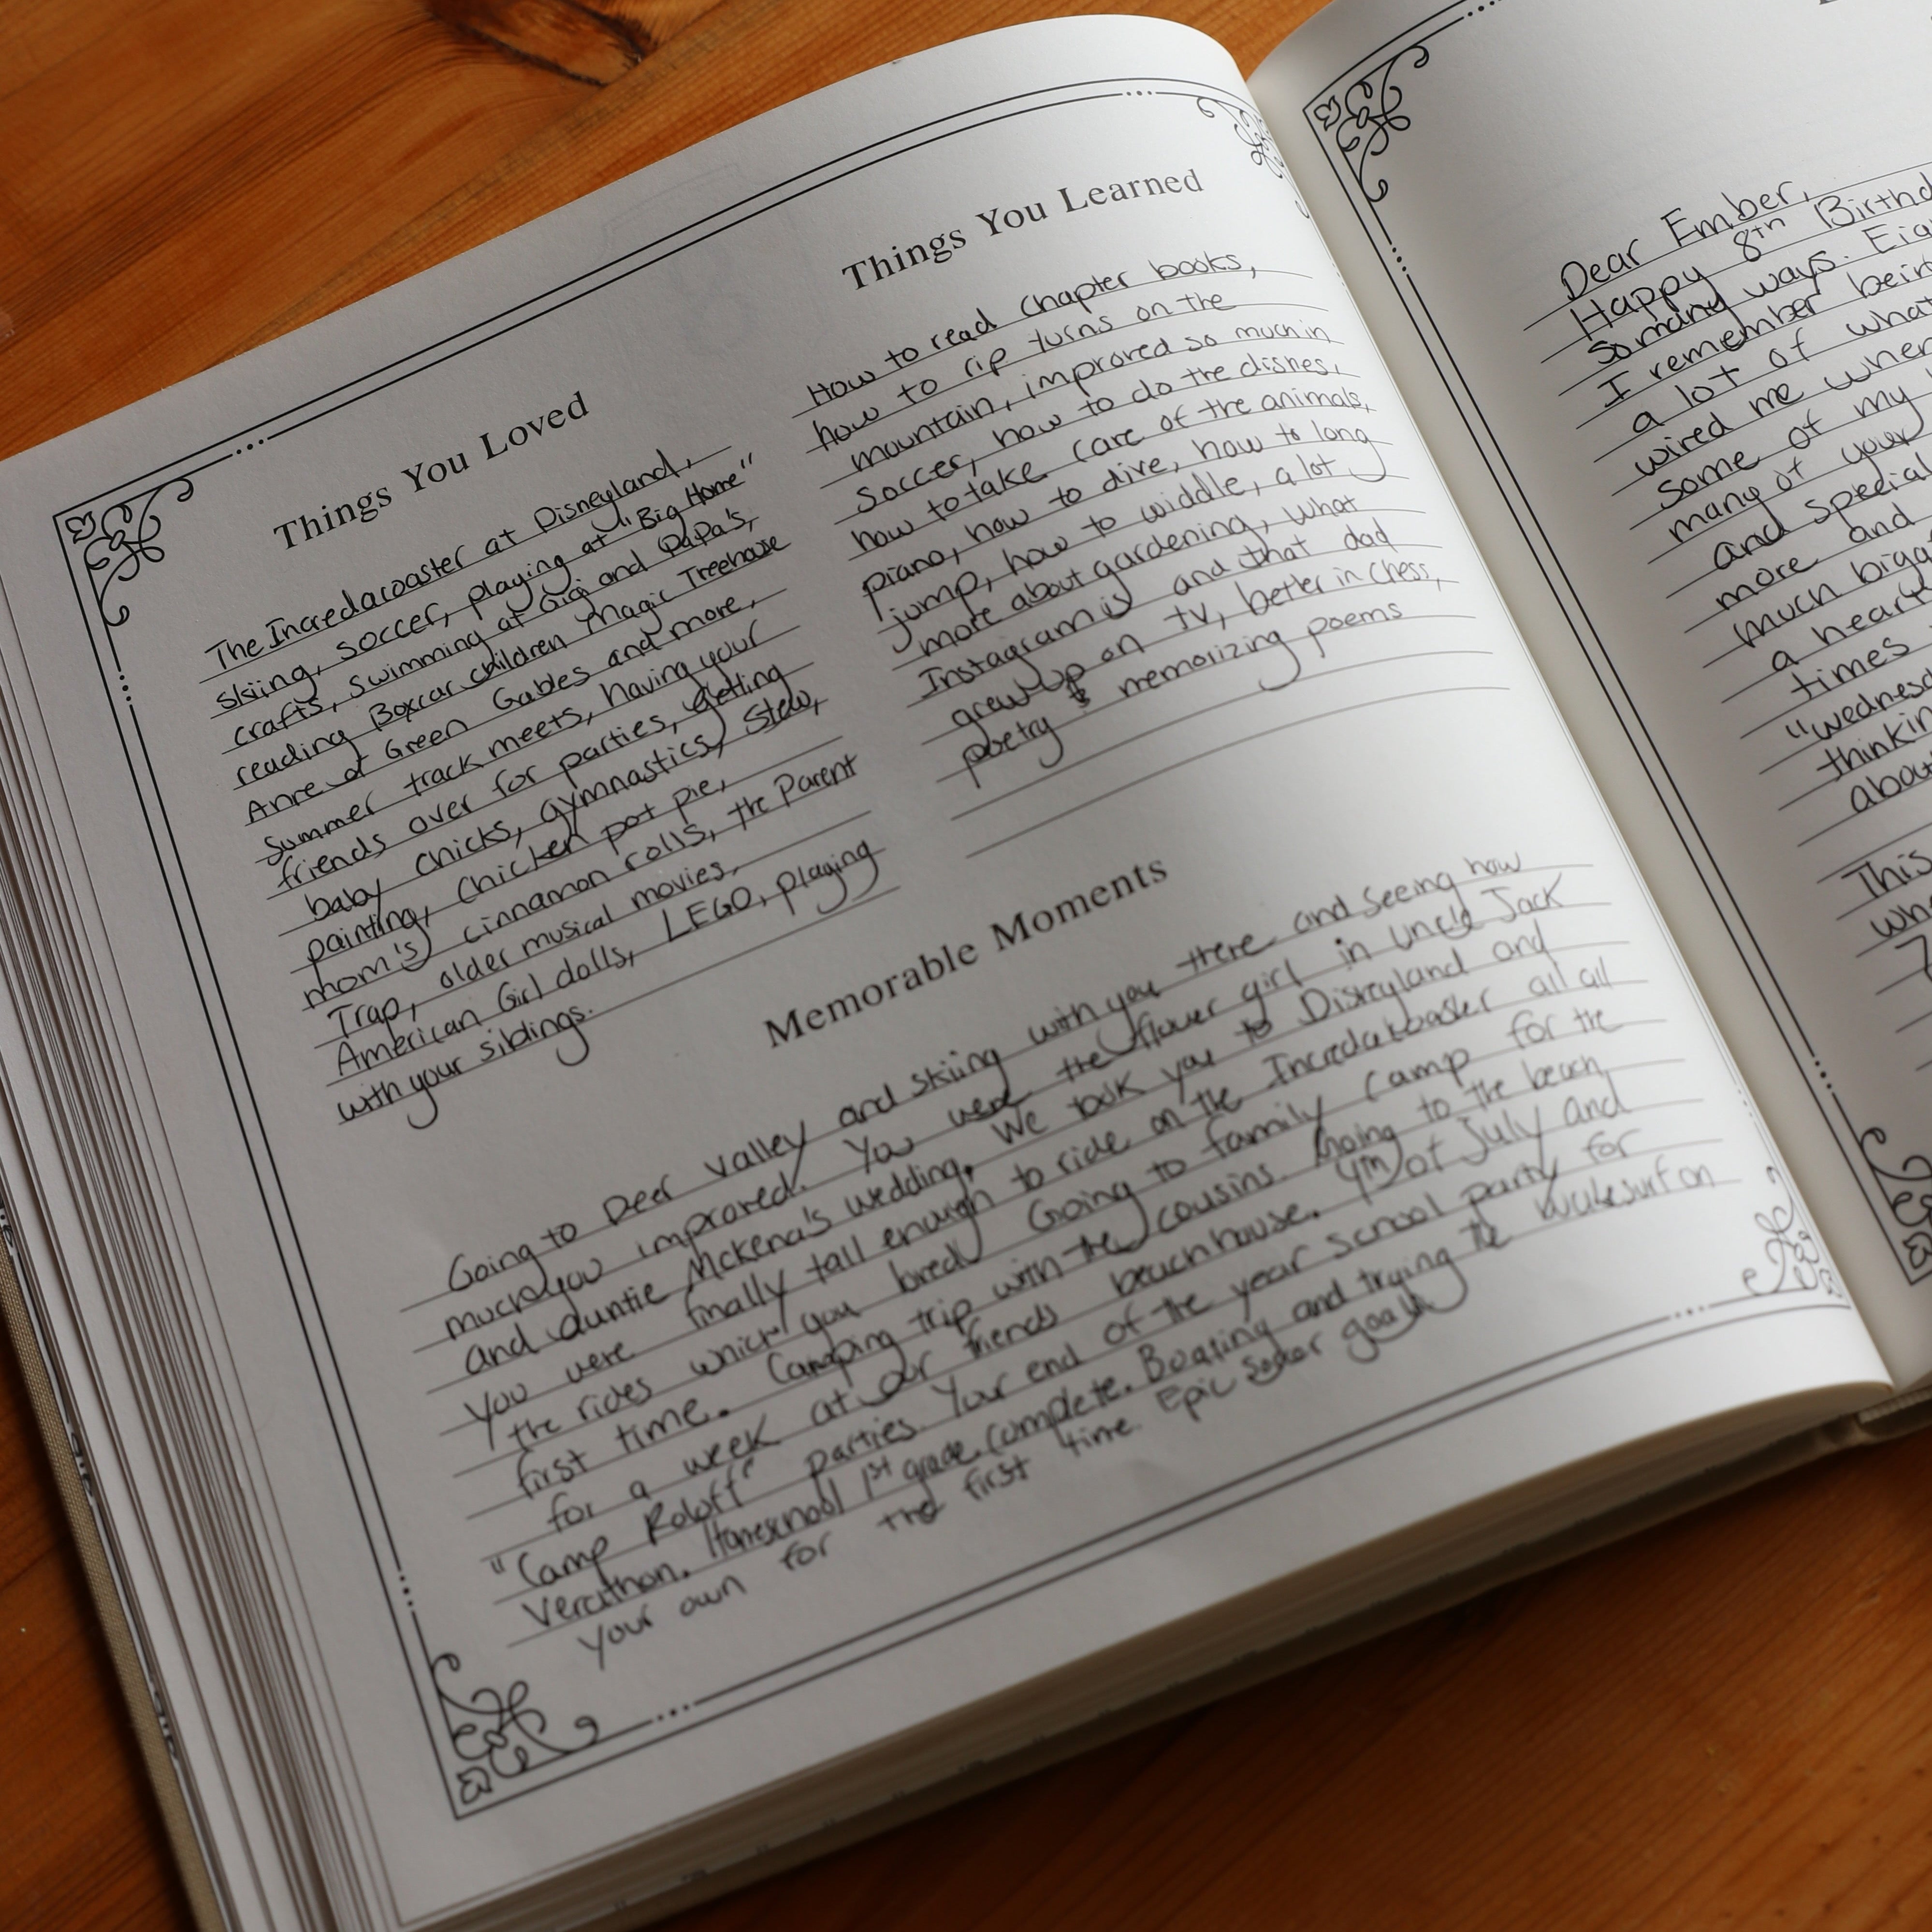 Things You Loved
The Incredacoaster at Disneyland,
skiing, soccer, playing at "Big Home"
crafts, swimming at Gigi and Papa's,
reading Boxcar children Magic Treehouse
Anne of Green Gables and more,
summer track meets, having your
friends over for parties, getting
baby chicks, gymnastics, stew,
painting, chicken pot pie,
mom's cinnamon rolls, the Parent
Trap, older musical movies,
American Girl dolls, LEGO, playing
with your siblings.
Things You Learned
How to read chapter books,
how to rip turns on the
mountain, improved so much in
soccer, how to do the dishes,
how to take care of the animals,
piano, how to dive, how to long
jump, how to widdle, a lot
more about gardening, what
Instagram is and that dad
grew up on tv, better in chess,
poetry & memorizing poems
Memorable Moments
Going to Deer Valley and skiing with you there and seeing how
much you improved. You were the flower girl in Uncle Jack
and auntie Mckena's wedding. We took you to Disneyland and
you were finally tall enough to ride on the Incredacoaster all all
the rides which you loved Going to family camp for the
first time. Camping trip with the cousins. Going to the beach
for a week at our friends beach house. 4th of July and
"Camp Roloff" parties. Your end of the year school party for
Homeschool 1st grade complete. Boating and trying the wakesurf on
your own for the first time. Epic soccer goals
Dear Ember,
Happy 8th
so many ways.
I remember
a lot of what
wired me
some of my
many of your
and special
more and
much
a
times
about
This